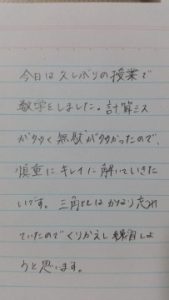 今日は久しぶりの授業で
数学をしました。計算ミス
が多く無駄が多かったので、
慎重にキレイに解いていきた
いです。三角比はかなり忘れ
ていたのでくりかえし練習しよ
うと思います。